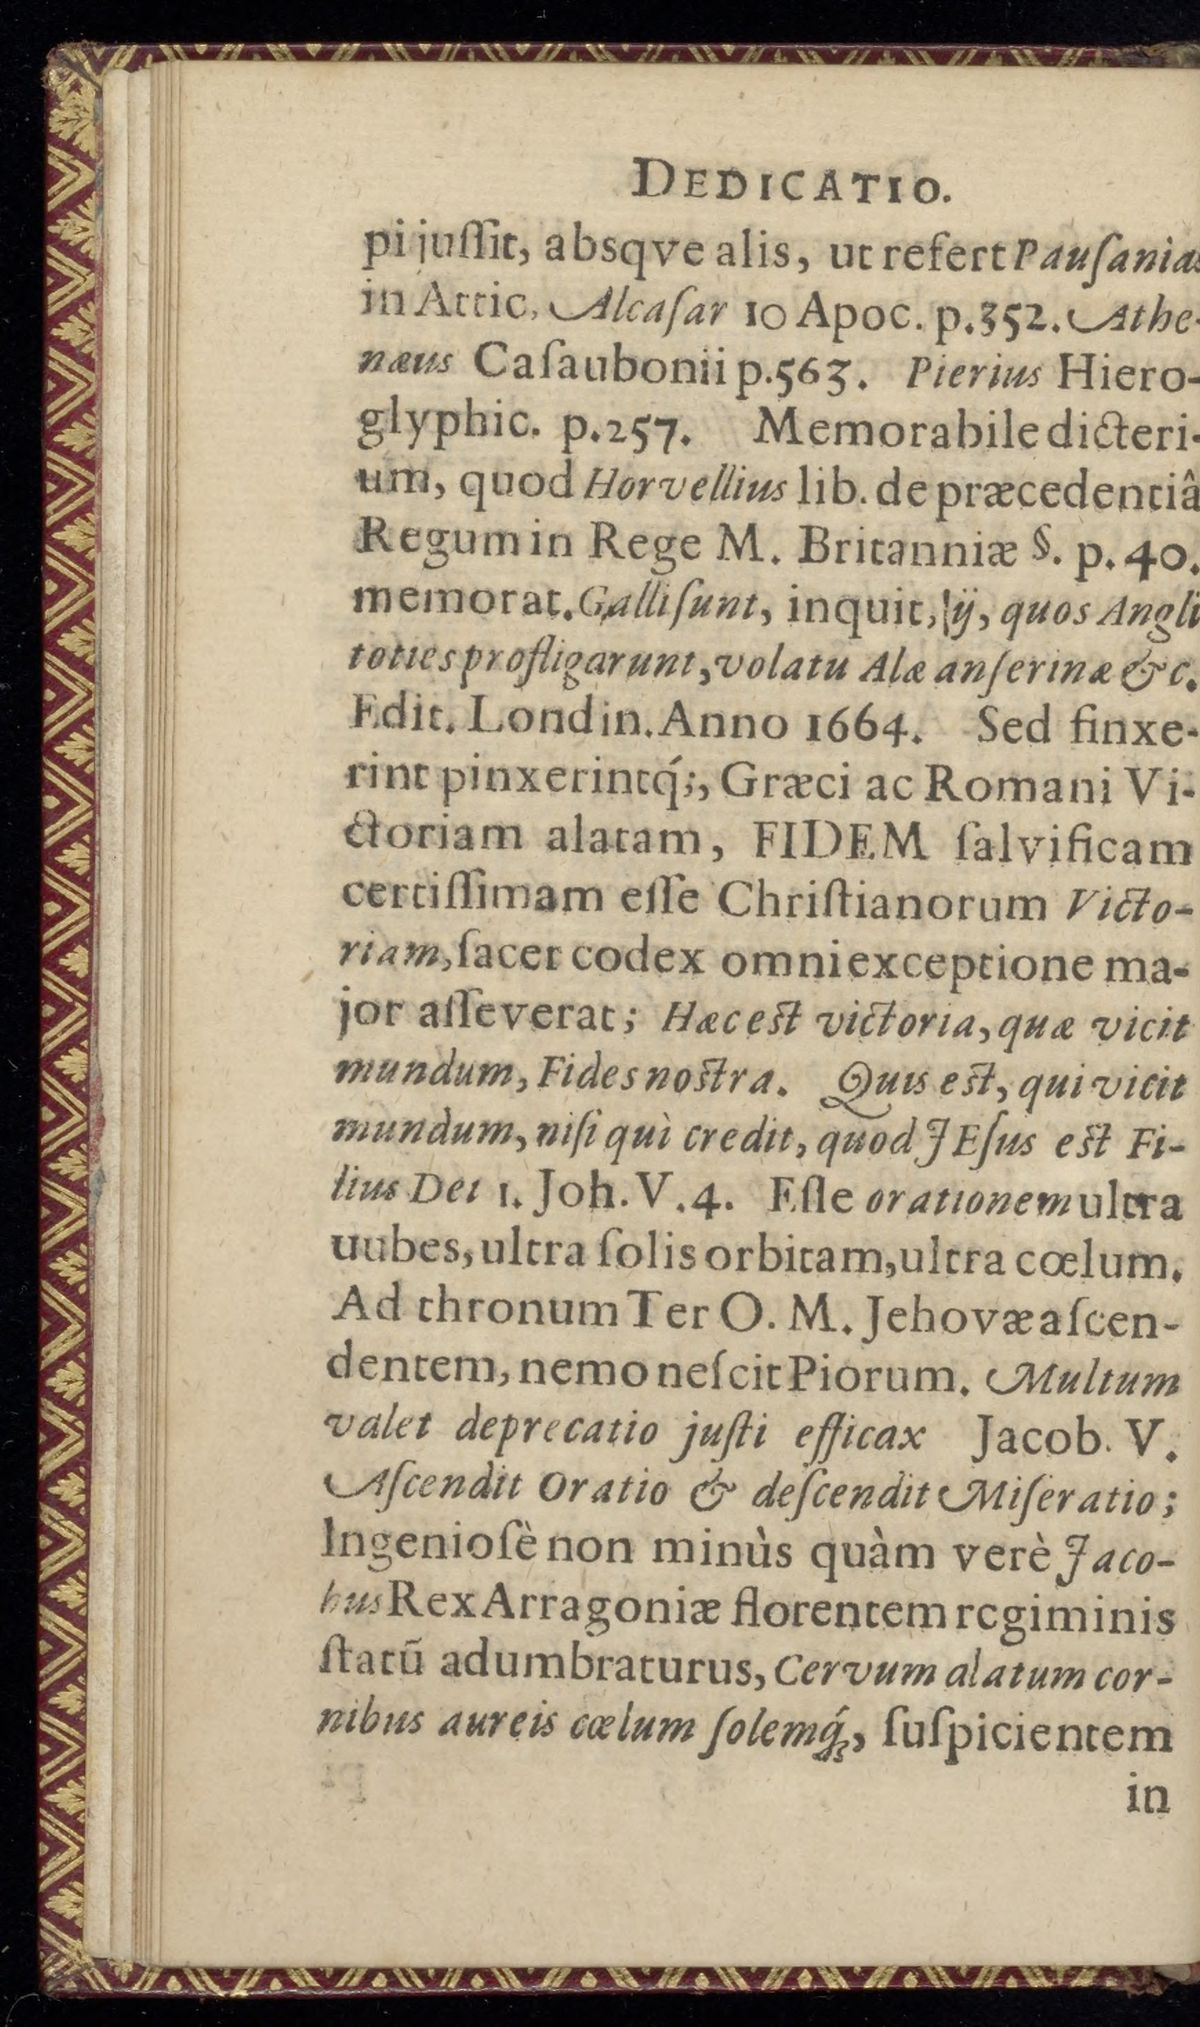 DEDICATIO.
pi juſſit, absqve alis, ut refert Pauſanias
in Attic. Alcaſar 10 Apoc. p. 352. Athe-
næus Caſaubonii p. 563. Pierius Hiero-
glyphic. p. 257. Memorabile dicteri-
um, quod Horvellius lib. de præcedentiâ
Regum in Rege M. Britanniæ §. p. 40.
memorat. Galli ſunt, inquit, ij, quos Angli
toties profligarunt, volatu Alæ anſerinæ &c.
Edit. Londin. Anno 1664. Sed finxe-
rint pinxerintq́;, Græci ac Romani Vi-
ctoriam alatam, FIDEM ſalvificam
certiſſimam eſſe Chriſtianorum Victo-
riam, ſacer codex omni exceptione ma-
jor aſſeverat; Hæc eſt victoria, quæ vicit
mundum, Fides noſtra. Quis eſt, qui vicit
mundum, niſi quì credit, quod JEſus eſt Fi-
lius Dei 1. Joh. V. 4. Eſſe orationem ultra
uubes, ultra ſolis orbitam, ultra cœlum.
Ad thronum Ter O. M. Jehovæ aſcen-
dentem, nemo neſcit Piorum. Multum
valet deprecatio juſti efficax Jacob. V.
Aſcendit Oratio & deſcendit Miſeratio;
Ingenioſè non minùs quàm verè Jaco-
bus Rex Arragoniæ florentem regiminis
ſtatũ adumbraturus, Cervum alatum cor-
nibus aureis cœlum ſolemq́;, ſuſpicientem
in